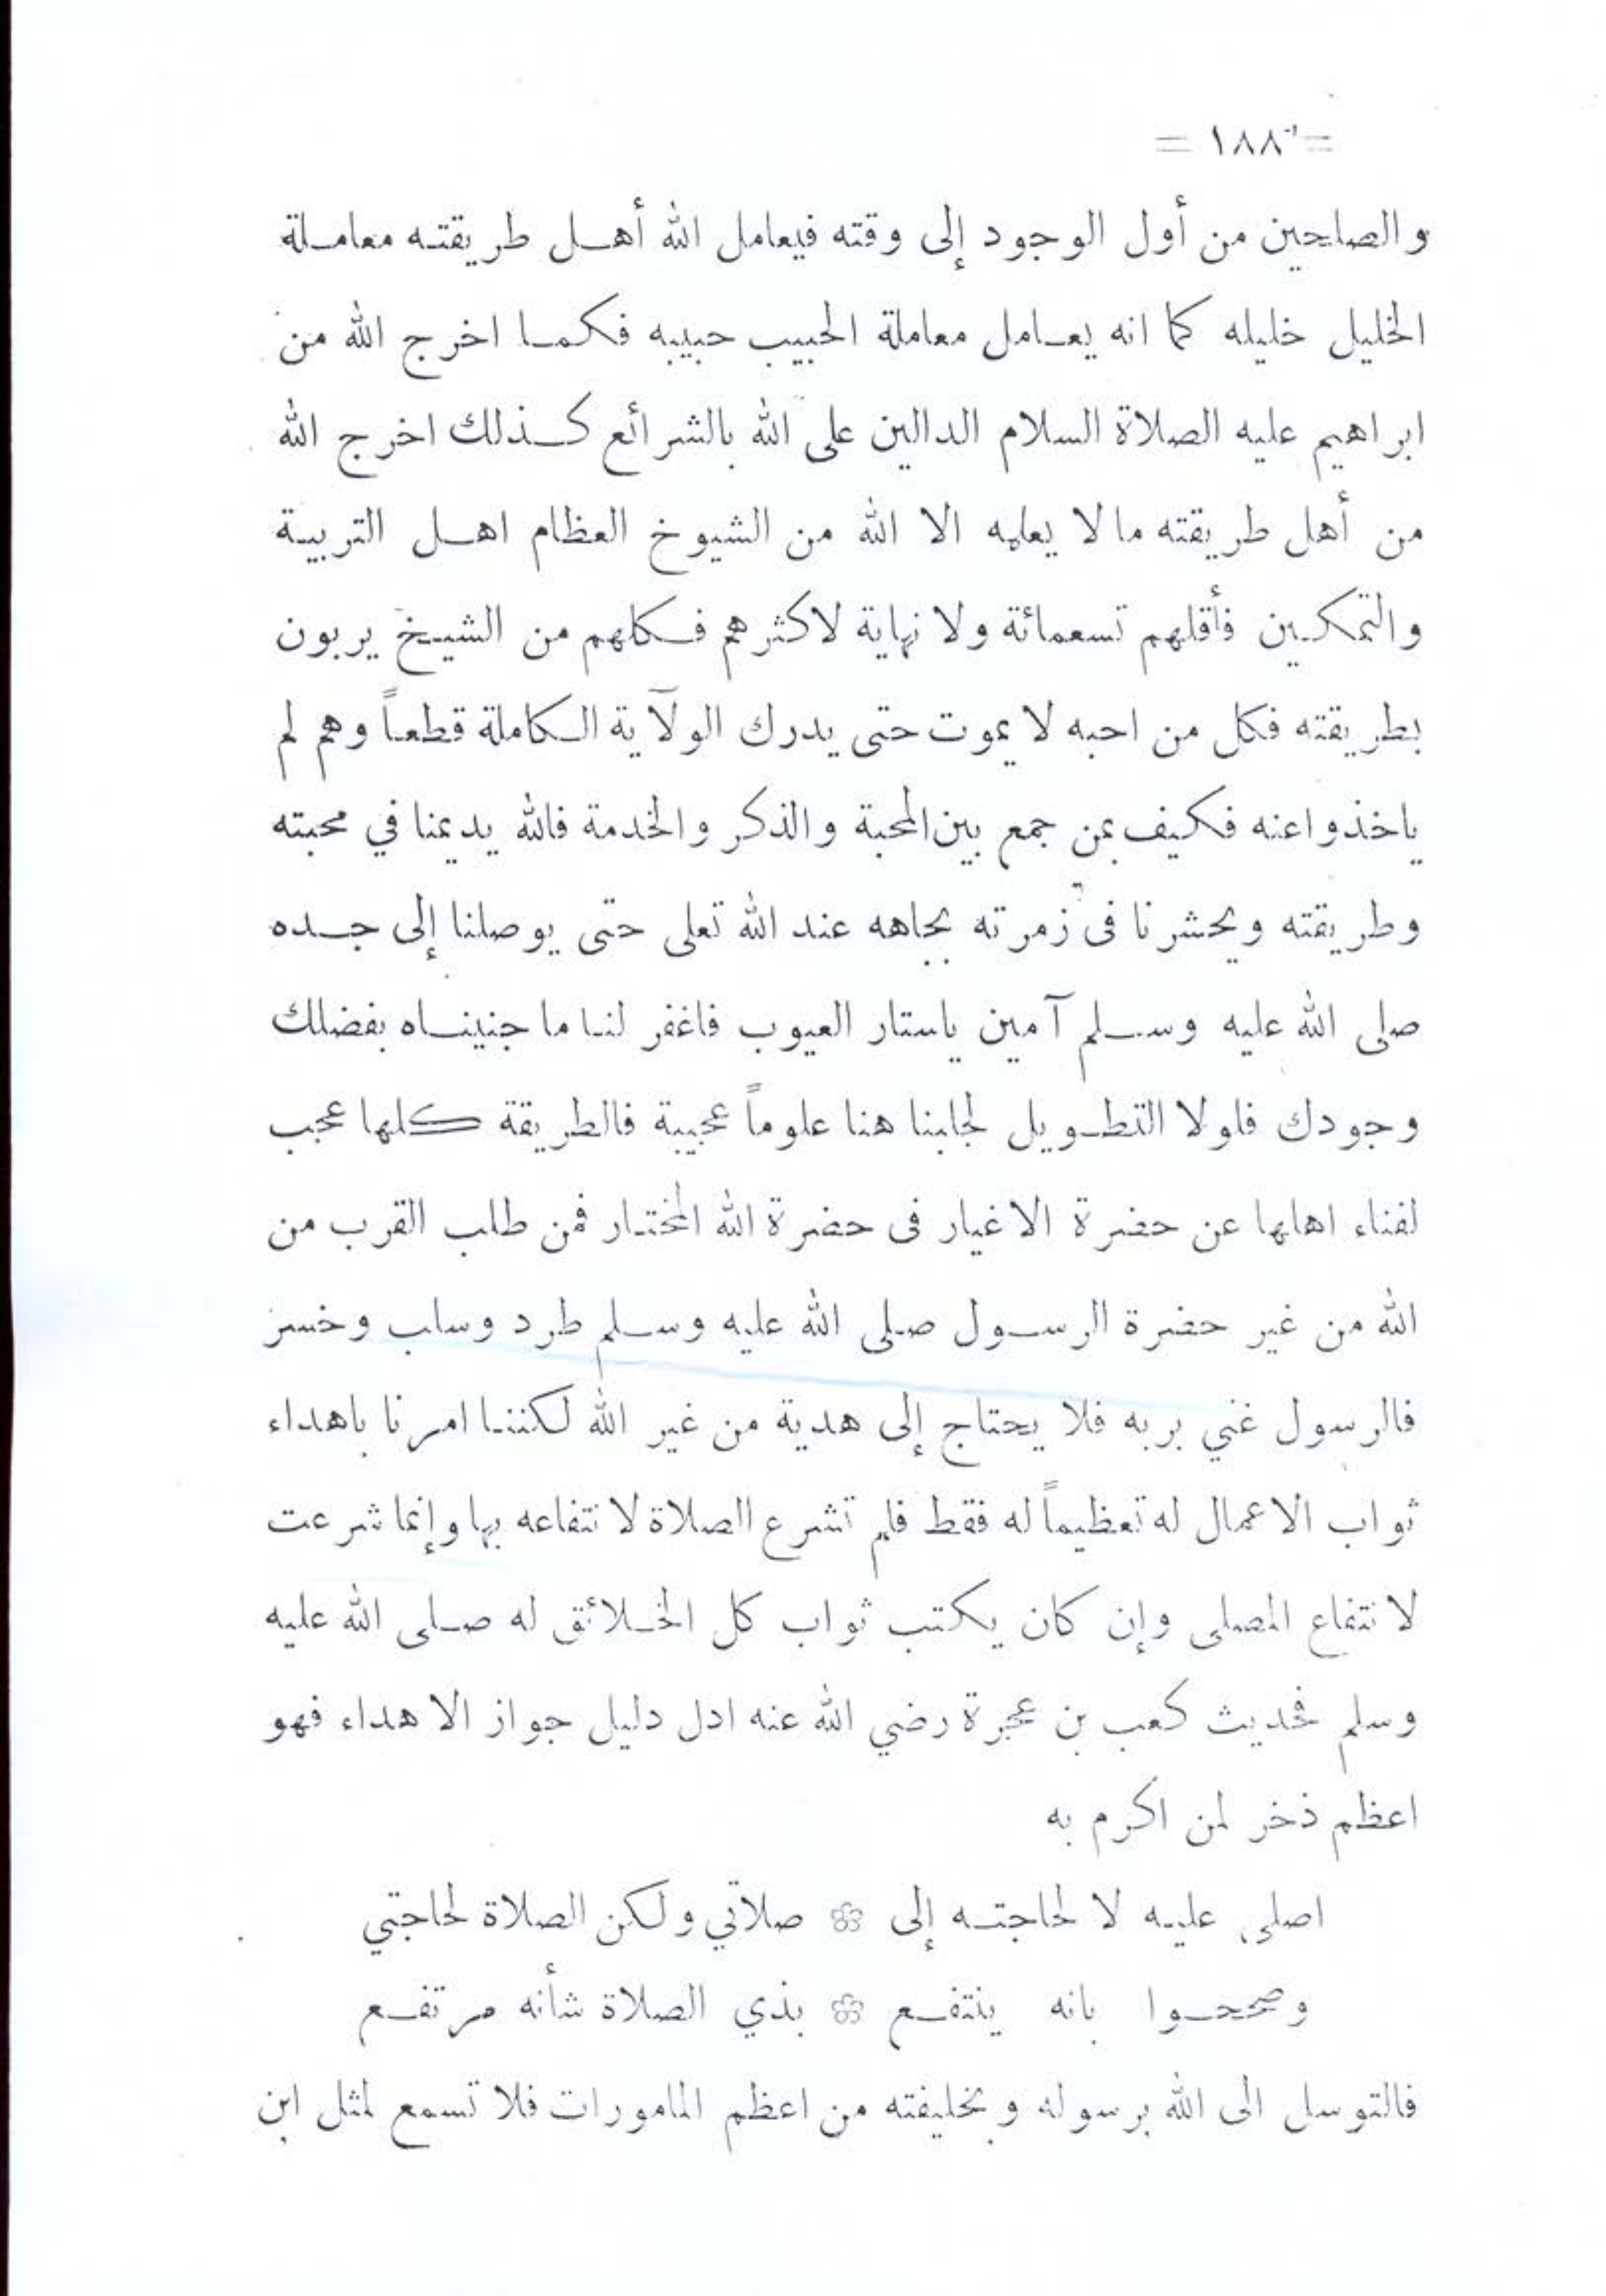 = ١٨٨ =
والصالحين من أول الوجود إلى وقته فيعامل الله أهل طريقته معاملة
الخليل خليله كما انه يعامل معاملة الحبيب حبيبه فكما اخرج الله من
ابراهيم عليه الصلاة السلام الدالين على الله بالشرائع كذلك اخرج الله
من أهل طريقته مالا يعلمه الا الله من الشيوخ العظام اهل التربية
والتمكين فأقلهم تسعمائة ولا نهاية لاكثرهم فكلهم من الشيخ يربون
بطريقته فكل من احبه لا يموت حتى يدرك الولآية الكاملة قطعاً وهم لم
ياخذوا عنه فكيف بمن جمع بين المحبة والذكر والخدمة فالله يديمنا في محبته
وطريقته ويحشرنا فى زمرته بجاهه عند الله تعلى حتى يوصلنا إلى جده
صلى الله عليه وسلم آمين ياستار العيوب فاغفر لنا ما جنيناه بفضلك
وجودك فلولا التطويل لجلبنا هنا علوماً عجيبة فالطريقة كلها عجب
لفناء اهلها عن حضرة الاغيار فى حضرة الله المختار فمن طلب القرب من
الله من غير حضرة الرسول صلى الله عليه وسلم طرد وسلب وخسر
فالرسول غني بربه فلا يحتاج إلى هدية من غير الله لكننا امرنا باهداء
ثواب الاعمال له تعظيماً له فقط فلم تشرع الصلاة لانتفاعه بها وإنما شرعت
لانتفاع المصلى وإن كان يكتب ثواب كل الخلائق له صلى الله عليه
وسلم فحديث كعب بن عجرة رضي الله عنه ادل دليل جواز الاهداء فهو
اعظم ذخر لمن اكرم به
اصلى عليه لا لحاجته إلى ۞ صلاتي ولكن الصلاة لحاجتي
وصححوا بانه ينتفع ۞ بذي الصلاة شأنه مرتفع
فالتوسل الى الله برسوله وبخليفته من اعظم المامورات فلا تسمع لمثل ابن